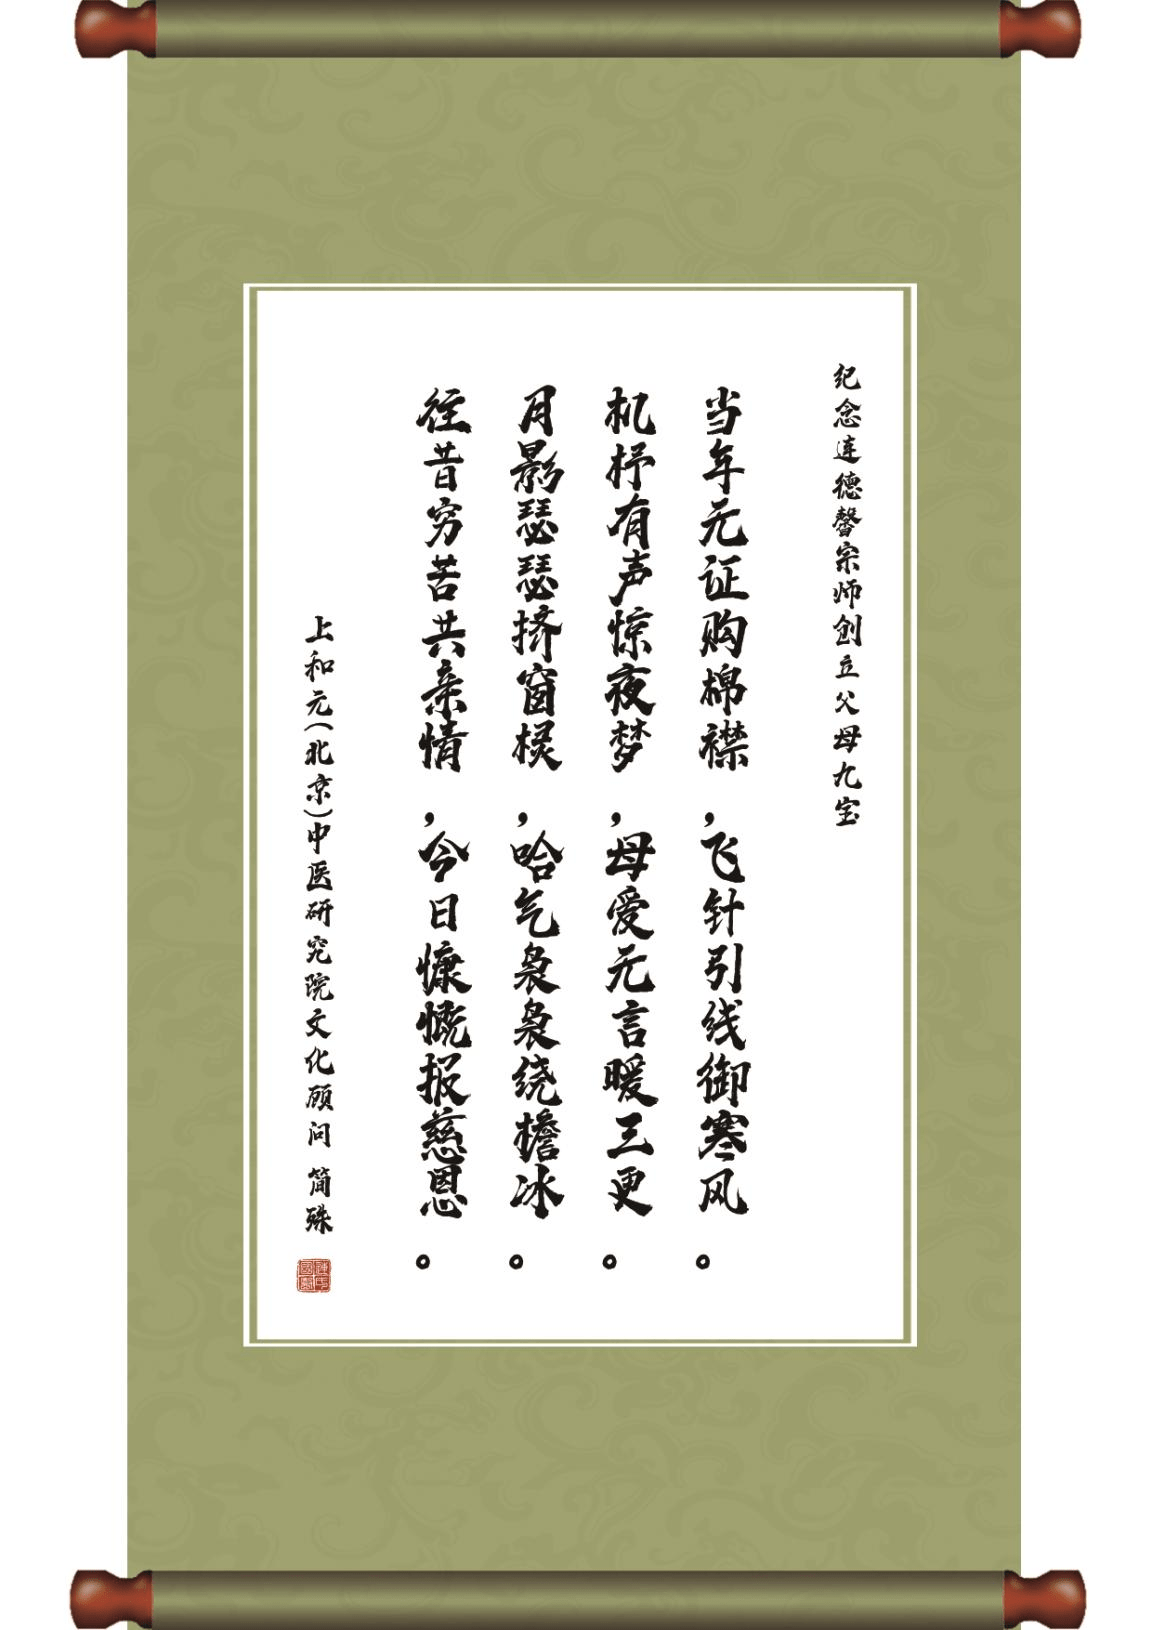 纪念连德馨宗师创立父母九宝
当年无证购棉襟，飞针引线御寒风。
机杼有声惊夜梦，母爱无言暖三更。
月影瑟瑟挤窗棂，哈气袅袅绕檐冰。
往昔穷苦共亲情，今日慷慨报慈恩。
上和元(北京)中医研究院文化顾问 简殊